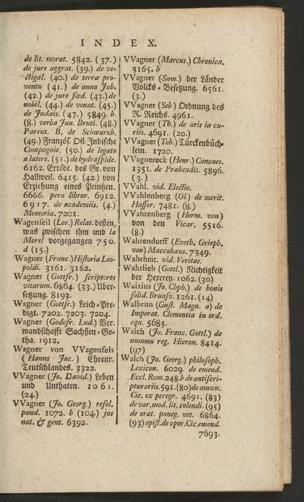 INDEX.
de lit. norat. 5842. (37.)
de jure aggrat. (39.) de ve-
ctigal. (40.) de terræ pro-
ventu (41.) de anno Jub.
(42.) de jure fisd. (43.) de
nobil. (44.) de venat. (45.)
de Judæis. (47.) 5849. b.
(8.) verba Jun. Bruti. (48.)
Parent. B. de Schwartzb.
(49.) Frantzös. Ost-Indische
Compagnie. (50.) de legato
a latere. (51.) de hydraspide.
6162. Ertödt. des Gr. von
Hallweil. 6415. (42.) von
Erziehung eines Printzen.
6666. pera libror. 6912.
6917. de academiis. (4.)
Memoria. 7201.
Wagenseil (Lor.) Relat. dessen,
was zwischen ihm und la
Morel vorgegangen 750.
d (15.)
Wagner (Franc.) Historia Leo-
poldi. 3161. 3162.
Wagner (Gottfr.) scriptores
vitarum. 6864. (33.) Uber-
setzung. 8193.
Wagner (Gottfr.) Leich-Pre-
digt. 7202. 7203. 7204.
Wagner (Godofr. Lud.) Ver-
wandschafft Sachsen-Go-
tha. 1912.
Wagner von Wagenfels
(Hanns Jac.) Ehrenr.
Teutschlandes. 3322.
VVagner (Jo. David.) Leben
und Unthaten. 1061.
(24.)
VVagner (Jo. Georg.) resol.
pand. 1072. b (104) jus
nat. & gent. 6392.
VVagner (Marcus.) Chronica.
3165. b
VVagner (Sam.) der Länder
Völcks-Besetzung. 6561.
(3.)
VVagner (Seb.) Ordnung des
R. Reichs. 4961.
VVagner (Th.) de aris in cu-
riis. 4691. (20.)
VVagner (Tob.) Türckenbüch-
lein. 1720.
VVagnereck (Henr.) Comnes.
1351. de Præbendis. 5896.
(3.)
VVahl. vid. Electio.
VVahlenberg (Ol.) de merit.
Hassor. 7481. (8.)
VVahrenberg (Herm. von)
von den Vicar. 5516.
(8.)
Wahrendorff (Everh. Grieph.
von) Maccabæus. 7349.
Wahrheit. vid. Veritas.
Wahrlieb (Gottl.) Nichtigkeit
der Hexerey. 1062. (30)
Waizius (Jo. Cbph.) de bonis
solid. Brunsv. 1261. (14)
Walbrun (Gust. Magn. a) de
Imperat. Clementia in ord.
eqn. 5685.
Walch (Jo. Franc. Gottl.) de
nummo reg. Hieron. 8414.
(97)
Walch (Jo. Georg.) philosoph.
Lexicon. 6029. de emend.
Eccl. Rom. 248. b de antiscri-
pturariis. 591. (80) de amen.
Cic. ex peregr. 4691. (83)
de var. mod. lit. colendi. (95)
de orat. paneg. vet. 6864.
(93) epist. de oper. Cic. emend.
7693.